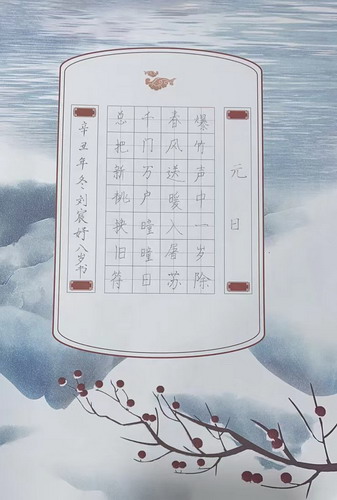 元日
爆竹声中一岁除
春风送暖入屠苏
千门万户曈曈日
总把新桃换旧符
辛丑年冬刘宸妤八岁书